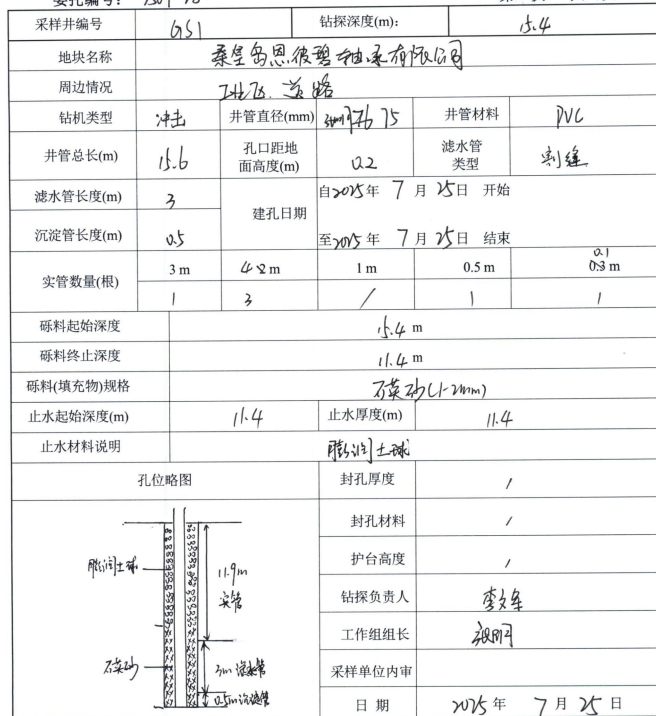 委托编号：
采样井编号 GS1 钻探深度(m): 15.4
地块名称 秦皇岛恩彼碧轴承有限公司
周边情况 工业区、道路
钻机类型 冲击 井管直径(mm) 75 井管材料 PVC
井管总长(m) 15.6 孔口距地面高度(m) 0.2 滤水管类型 割缝
滤水管长度(m) 3 建孔日期 自2025年 7月25日 开始
沉淀管长度(m) 0.5 至2025年 7月25日 结束
实管数量(根) 3 m 4 m 1 m 0.5 m 0.1 m
1 3 / 1 1
砾料起始深度 15.4 m
砾料终止深度 11.4 m
砾料(填充物)规格 石英砂(1-2mm)
止水起始深度(m) 11.4 止水厚度(m) 11.4
止水材料说明 膨润土球
孔位略图 封孔厚度 /
封孔材料 /
护台高度 /
钻探负责人 李文军
工作组组长
采样单位内审
日 期 2025年 7月25日
膨润土球
11.9m
实管
石英砂
3m 滤水管
0.5m沉淀管